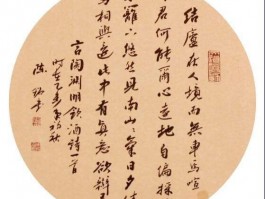 結廬在人境而無車馬喧
君何能爾心遠地自偏採
籬下悠然見南山山氣日夕
鳥相與還此中有真意欲辨
言陶淵明飲酒詩一首
時在乙未年初秋
陈